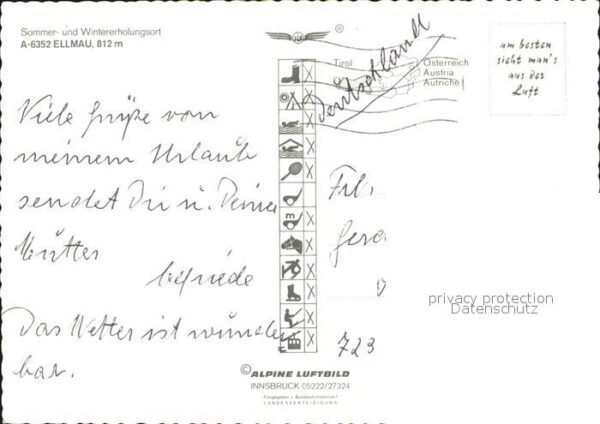 Sommer- und Wintererholungsort
A-6352 ELLMAU, 812 m
®
Tirol
Österreich
Austria
Autriche
Deutschland
am besten
sieht man's
aus der
Luft
Viele Grüße von
meinem Urlaub
sendet Dir u. Deine
Mutter
Das Wetter ist wunder
bar.
m
Frl.
723
privacy protection
Datenschutz
© ALPINE LUFTBILD
INNSBRUCK 05222/27324
Freigegeben v. Bundesministerium f.
LANDESVERTEIDIGUNG